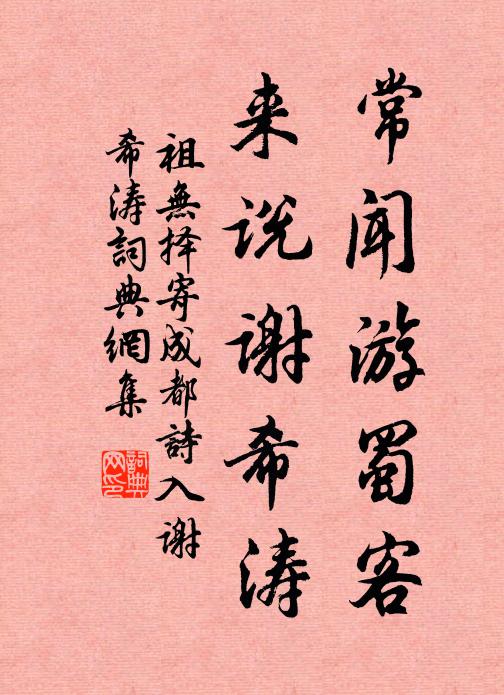 常闻游蜀客
来说谢希涛
祖無择寄成都詩入谢
希涛詞典網集
詞典
网印